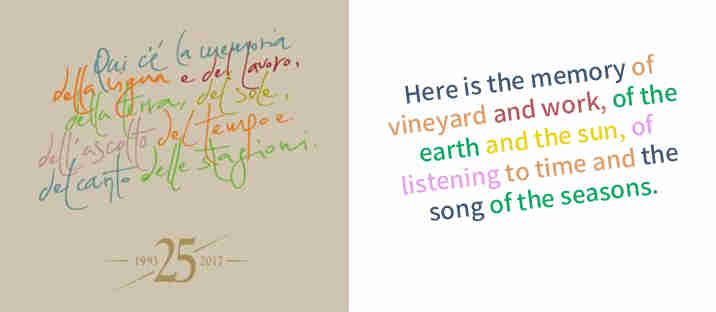 Qui c'è la memoria
della vigna e del lavoro,
della terra, del sole,
dell'ascolto del tempo e
del canto delle stagioni.
1993 25 2017
Here is the memory of
vineyard and work, of the
earth and the sun, of
listening to time and the
song of the seasons.